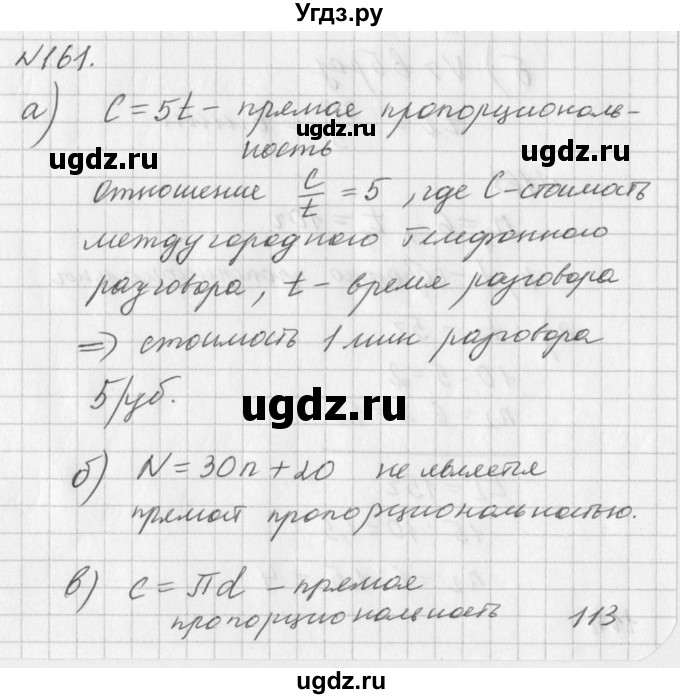 Угдз.ру
№161.
а) C = 5t - прямая пропорциональ-
ность
ugdz.ru
ugdz.ru
отношение C/t = 5, где C - стоимость
междугородного телефонного
разговора, t - время разговора
ugdz.ru
ugdz.ru
=> стоимость 1 мин разговора
5 руб.
ugdz.ru
б) N = 30n + 20 не является
прямой пропорциональностью.
в) c = πd - прямая
пропорциональность 113
ugdz.ru
ugdz.ru
Угдз.ру